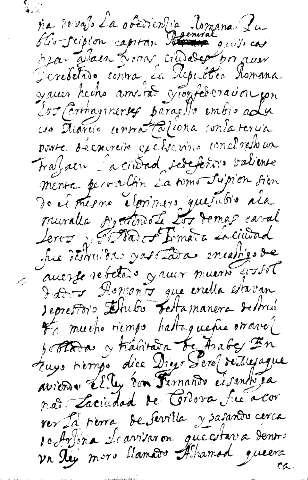 na debajo La obediencia Romana Pu
blio scipion capitan general quiso cas
tigar algunas ciudades por aver
se rebelado contra la Republica Romana
y aver hecho amistad y confederacion con
Los Cartaginenses para ello embio a Lu
cio Marcio contra Castona con la tercia
parte del exercito y el se vino con el resto a
La ciudad se defendio valiente
mente pero al fin La tomo Scipion sien
do el mismo el primero que subio a la
muralla siguiendole Los demas caval
leros y soldados tomada La ciudad
fue destruida y asolada en castigo de
averse rebelado y aver muerto Los sol
dados Romanos que en ella estavan
de presidio Estubo desta manera destrui
da mucho tiempo hasta que fue otra vez
poblada y habitada de Arabes En
cuyo tiempo dice Diego Perez de
aviendo el Rey don Fernando el santo ga
nado La ciudad de Cordova fue a cor
rer La tierra de Sevilla y pasando cerca
de Arjona Le avisaron que estava dentro
un Rey moro llamado Alhamad que era
ca